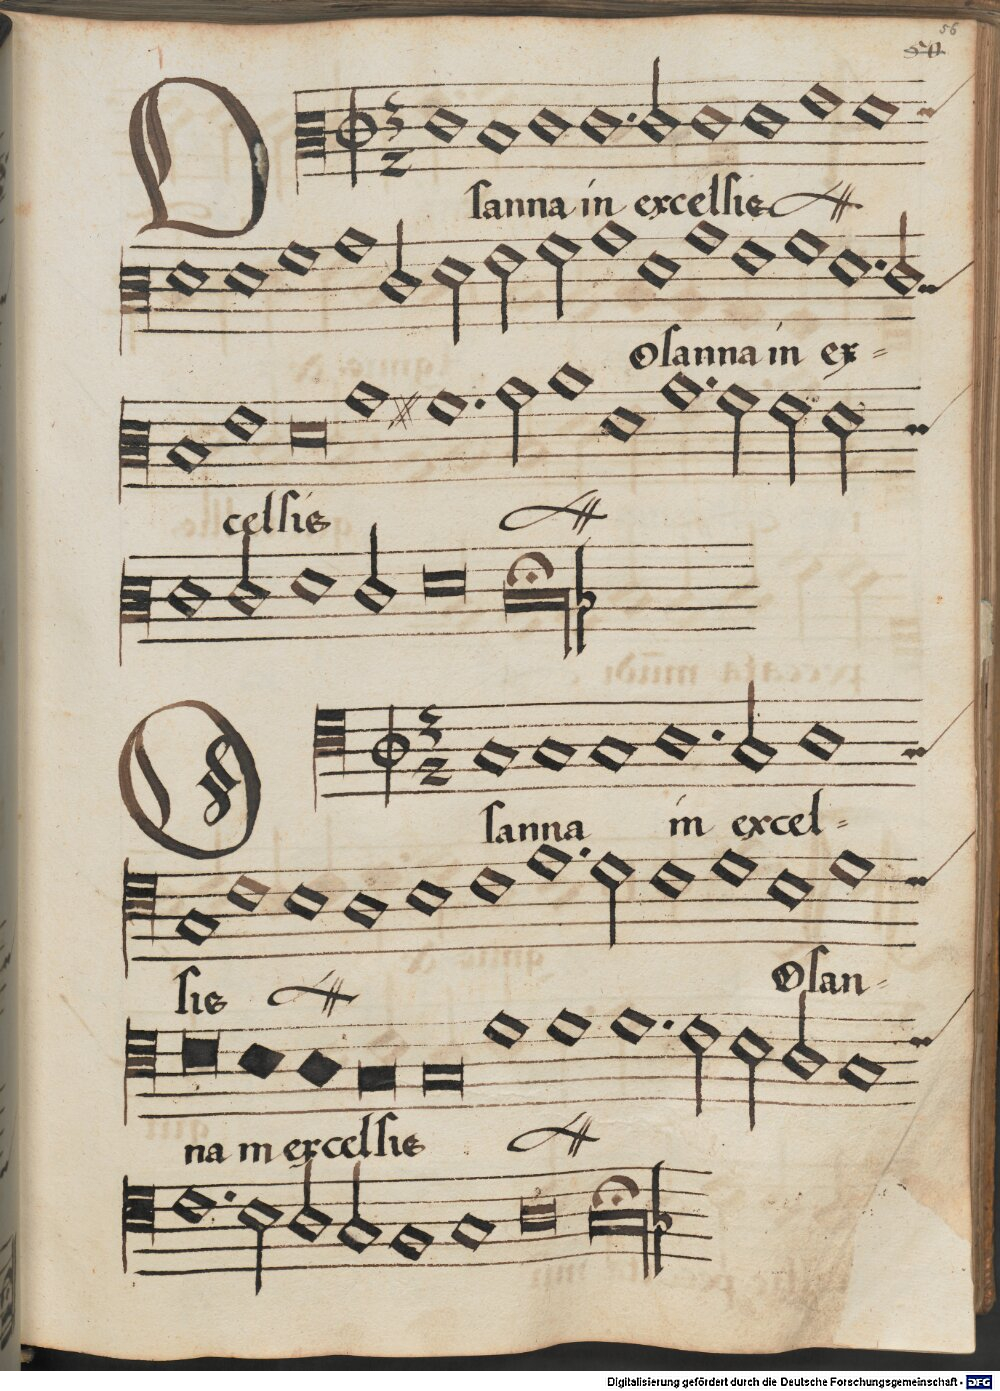 56
50
O
3
2
sanna in excelsis
Osanna in ex=
celsis
O
3
2
sanna in excel=
sis Osan=
na in excelsis
Digitalisierung gefördert durch die Deutsche Forschungsgemeinschaft - DFG